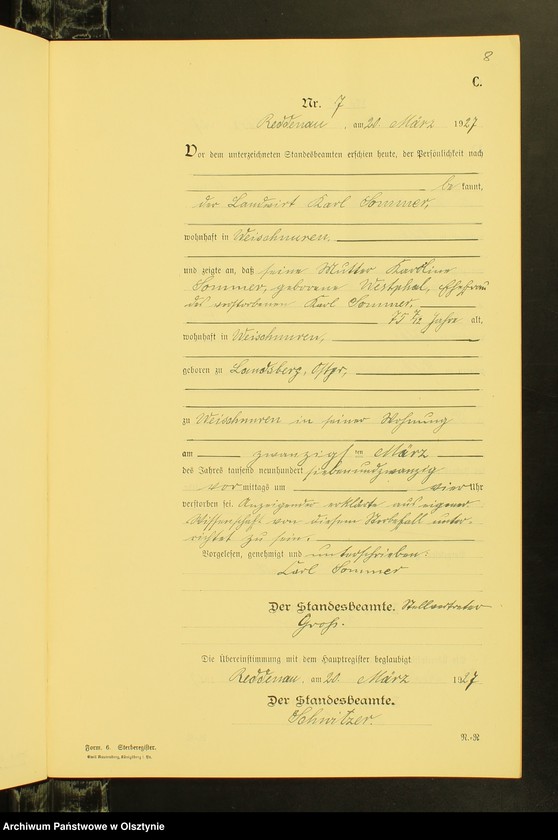 8
C.
Nr. 7
Reddenau, am 20. März 1927
Vor dem unterzeichneten Standesbeamten erschien heute, der Persönlichkeit nach
be kannt,
der Landwirt Karl Sommer,
wohnhaft in Weischnuren,
und zeigte an, daß seine Mutter Karoline
Sommer, geborene Westphal, Ehefrau
des verstorbenen Karl Sommer,
75 Jahre alt,
wohnhaft in Weischnuren,
geboren zu Landsberg, Ostpr,
zu Weischnuren in seiner Wohnung
am zwanzigsten März
des Jahres tausend neunhundert siebenundzwanzig
vor mittags um vier Uhr
verstorben sei. Anzeigender erklärte aus eigener
Wissenschaft von diesem Sterbefall unter-
richtet zu sein.
Vorgelesen, genehmigt und unterschrieben:
Karl Sommer
Der Standesbeamte. Stellvertreter
Groß.
Die Übereinstimmung mit dem Hauptregister beglaubigt
Reddenau, am 20. März 1927
Der Standesbeamte.
Schnitzer.
Form. 6. Sterberegister.
R.-R
Archiwum Państwowe w Olsztynie